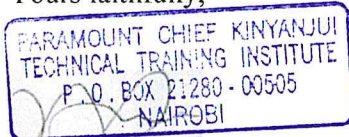 Yours faithfully,
PARAMOUNT CHIEF KINYANJUI
TECHNICAL TRAINING INSTITUTE
P. O. BOX 21280 - 00505
NAIROBI